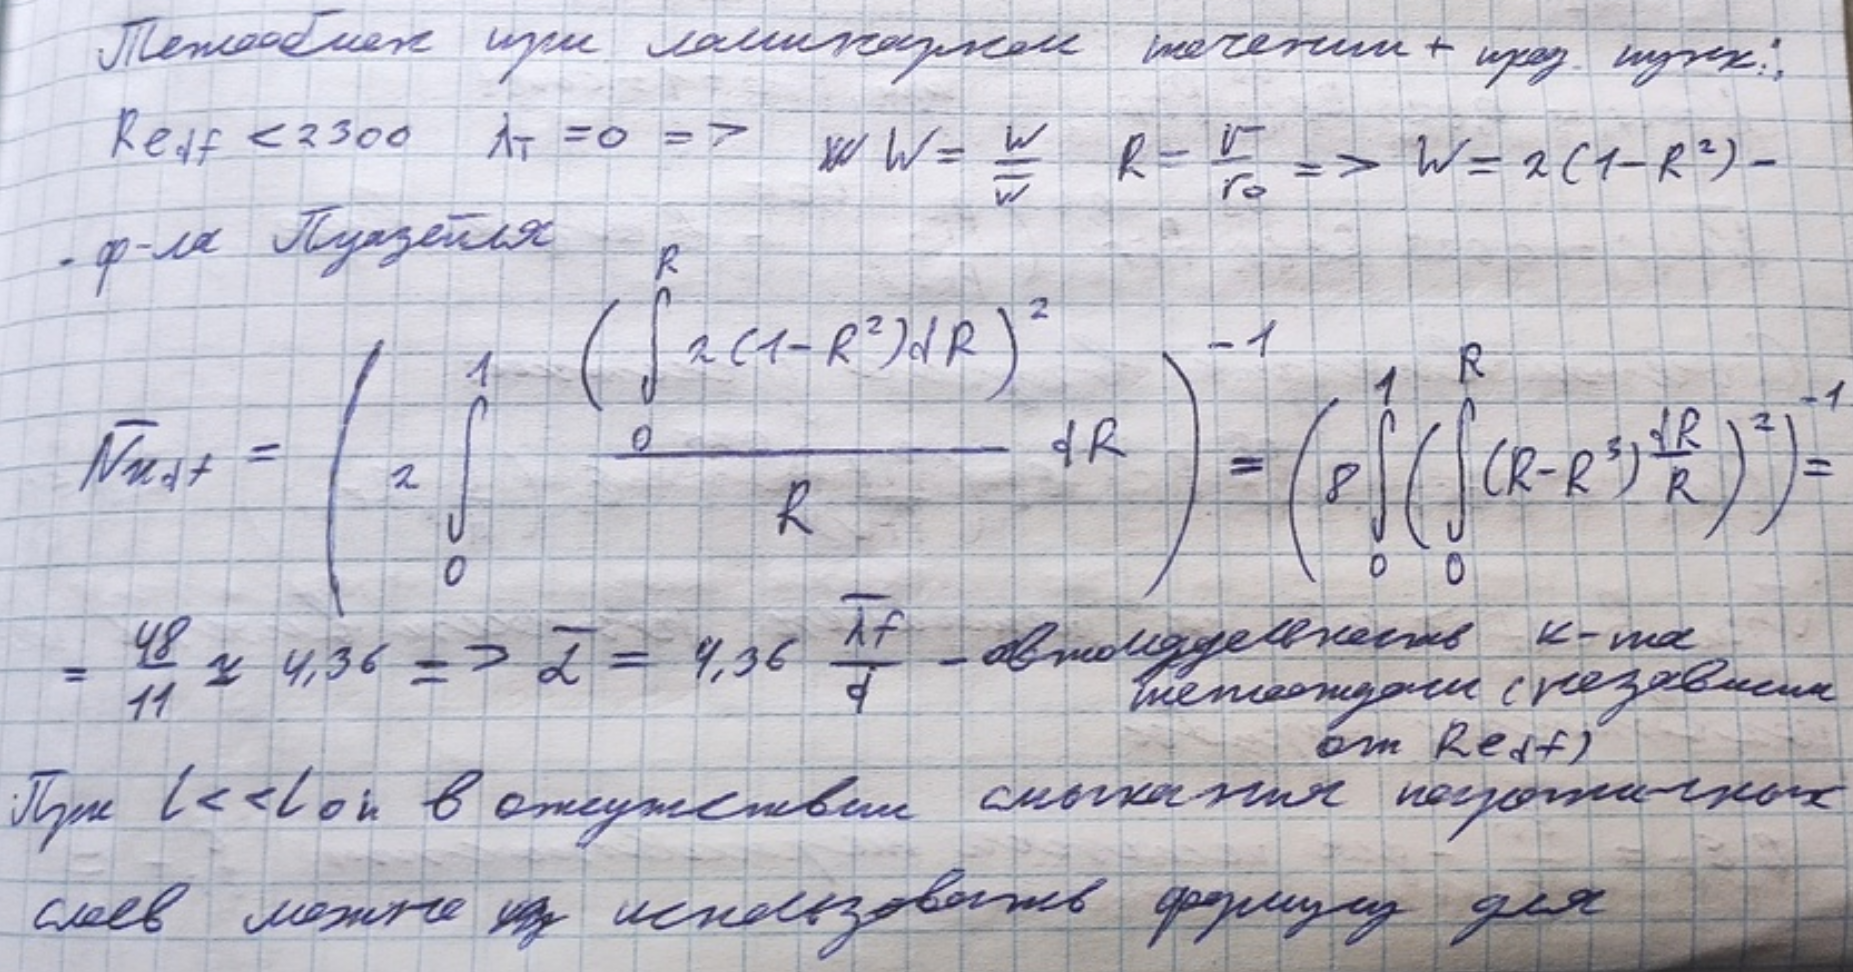 Теплообмен при ламинарном течении + пред. пункт:
Re_df < 2300 λ_T = 0 => W = w/w̄ R = r/r₀ => W = 2(1-R²) -
- ф-ла Пуазейля
N̄u_df = (2 ∫₀¹ (∫₀ᴿ 2(1-R²)dR)² / R dR)⁻¹ = (8 ∫₀¹ (∫₀ᴿ (R-R³) dR/R)²)⁻¹ =
= 48/11 ≈ 4,36 => ᾱ = 4,36 λ̄f/d - автомодельность к-та
теплоотдачи (независим
от Re_df)
При l << l он в отсутствии смыкания пограничных
слоев можно использовать формулу для